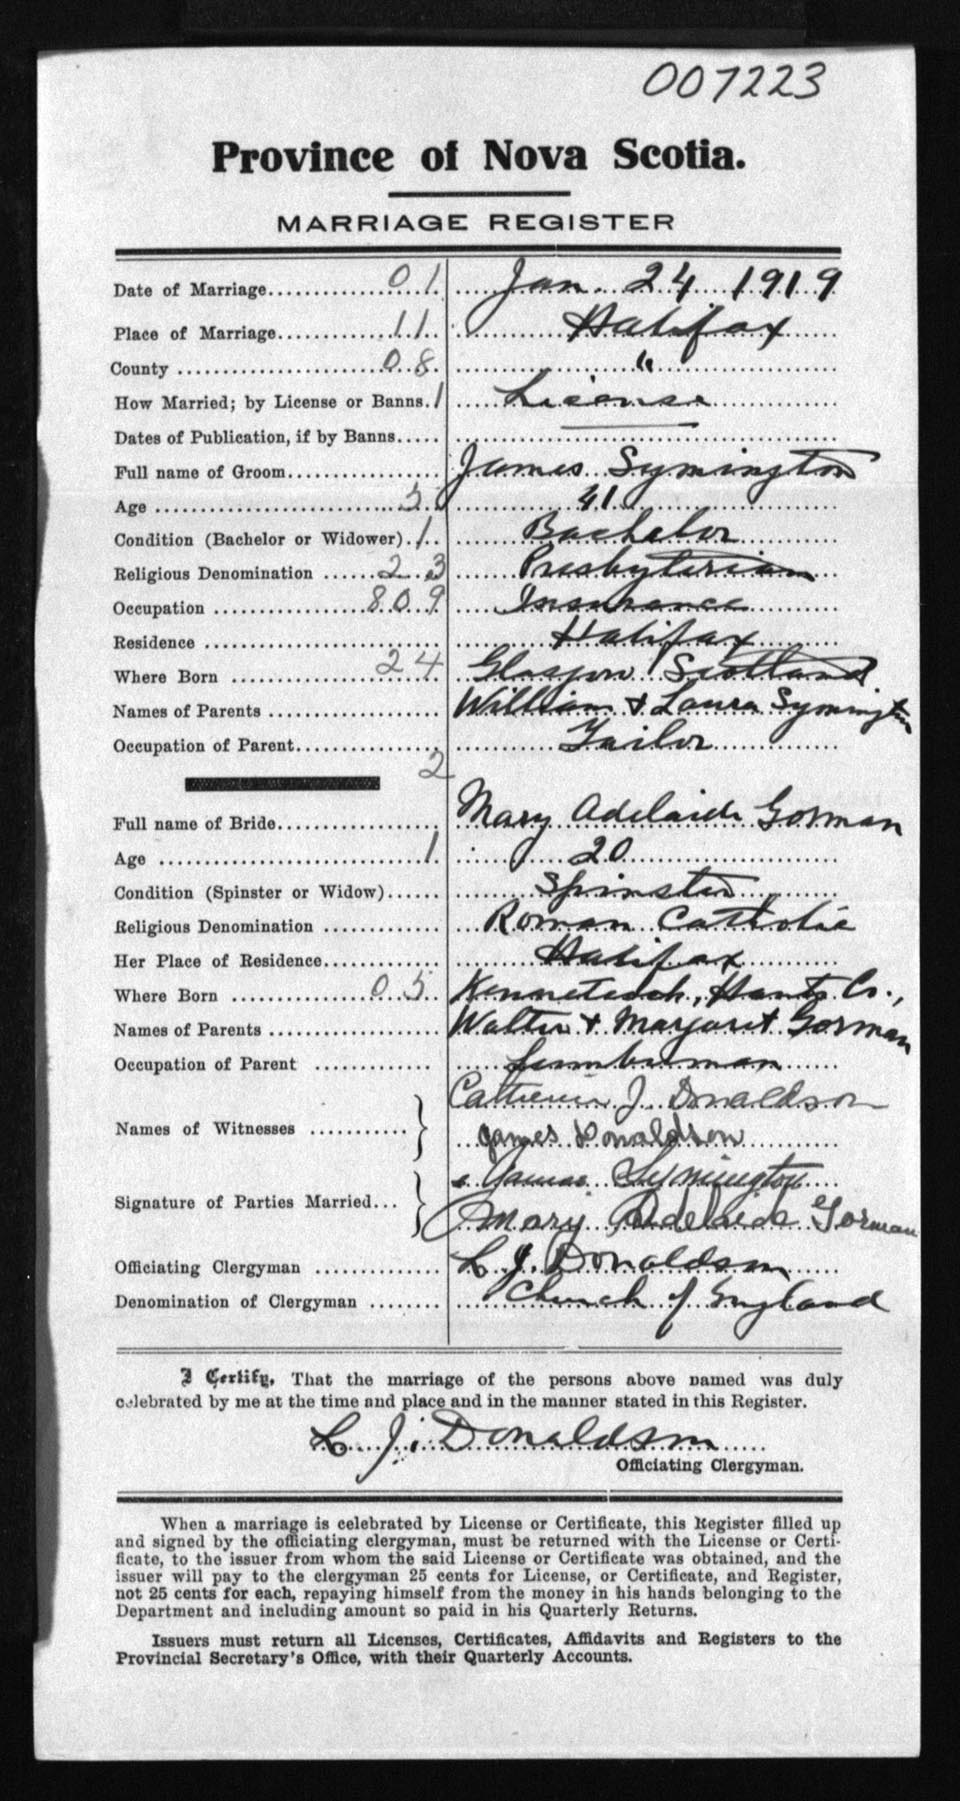 007223
Province of Nova Scotia.
MARRIAGE REGISTER
Date of Marriage 01 Jan. 24 1919
Place of Marriage 11 Halifax
County 08 "
How Married; by License or Banns. 1 License
Dates of Publication, if by Banns
Full name of Groom James Symington
Age 5 41
Condition (Bachelor or Widower) 1 Bachelor
Religious Denomination 23 Presbyterian
Occupation 809 Insurance
Residence Halifax
Where Born 24 Glasgow Scotland
Names of Parents William & Laura Symington
Occupation of Parent Tailor
2
Full name of Bride Mary Adelaide Gorman
Age 1 20
Condition (Spinster or Widow) Spinster
Religious Denomination Roman Catholic
Her Place of Residence Halifax
Where Born 05 Kennetcook, Hants Co.,
Names of Parents Walter & Margaret Gorman
Occupation of Parent Lumberman
Catherine J Donaldson
Names of Witnesses
James Donaldson
James Symington
Signature of Parties Married
Mary Adelaide Gorman
Officiating Clergyman L. J. Donaldson
Denomination of Clergyman Church of England
I Certify, That the marriage of the persons above named was duly
celebrated by me at the time and place and in the manner stated in this Register.
L. J. Donaldson
Officiating Clergyman.
When a marriage is celebrated by License or Certificate, this Register filled up
and signed by the officiating clergyman, must be returned with the License or Certi-
ficate, to the issuer from whom the said License or Certificate was obtained, and the
issuer will pay to the clergyman 25 cents for License, or Certificate, and Register,
not 25 cents for each, repaying himself from the money in his hands belonging to the
Department and including amount so paid in his Quarterly Returns.
Issuers must return all Licenses, Certificates, Affidavits and Registers to the
Provincial Secretary's Office, with their Quarterly Accounts.